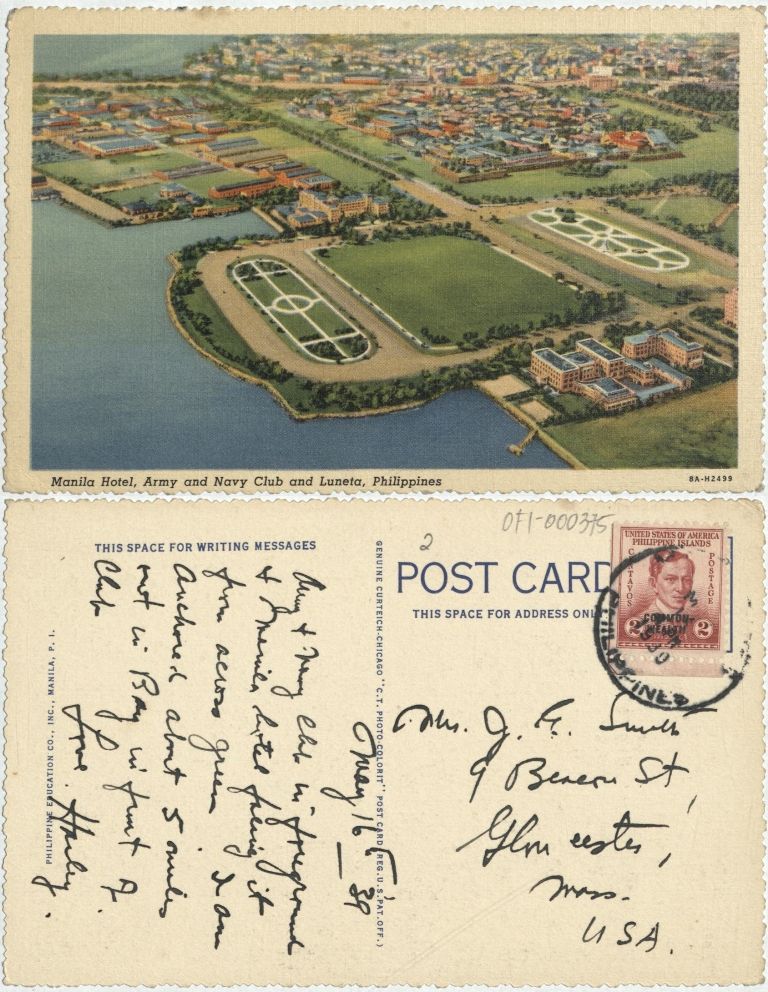 Manila Hotel, Army and Navy Club and Luneta, Philippines
8A-H2499
OFI-000375
2
THIS SPACE FOR WRITING MESSAGES
POST CARD
THIS SPACE FOR ADDRESS ONLY
UNITED STATES OF AMERICA
PHILIPPINE ISLANDS
CENTAVOS
POSTAGE
COMMON-
WEALTH
2 2
PHILIPPINES
GENUINE CURTEICH-CHICAGO "C.T. PHOTO-COLORIT" POST CARD (REG. U.S. PAT. OFF.)
PHILIPPINE EDUCATION CO., INC., MANILA, P. I.
May 16 - 39
Army & Navy Club in foreground
& Manila hotel facing it
from across green. I am
Anchored about 5 miles
out in Bay in front of
Club
Love
Mrs. J. A. Smith
9 Beacon St,
Gloucester,
Mass.
USA.